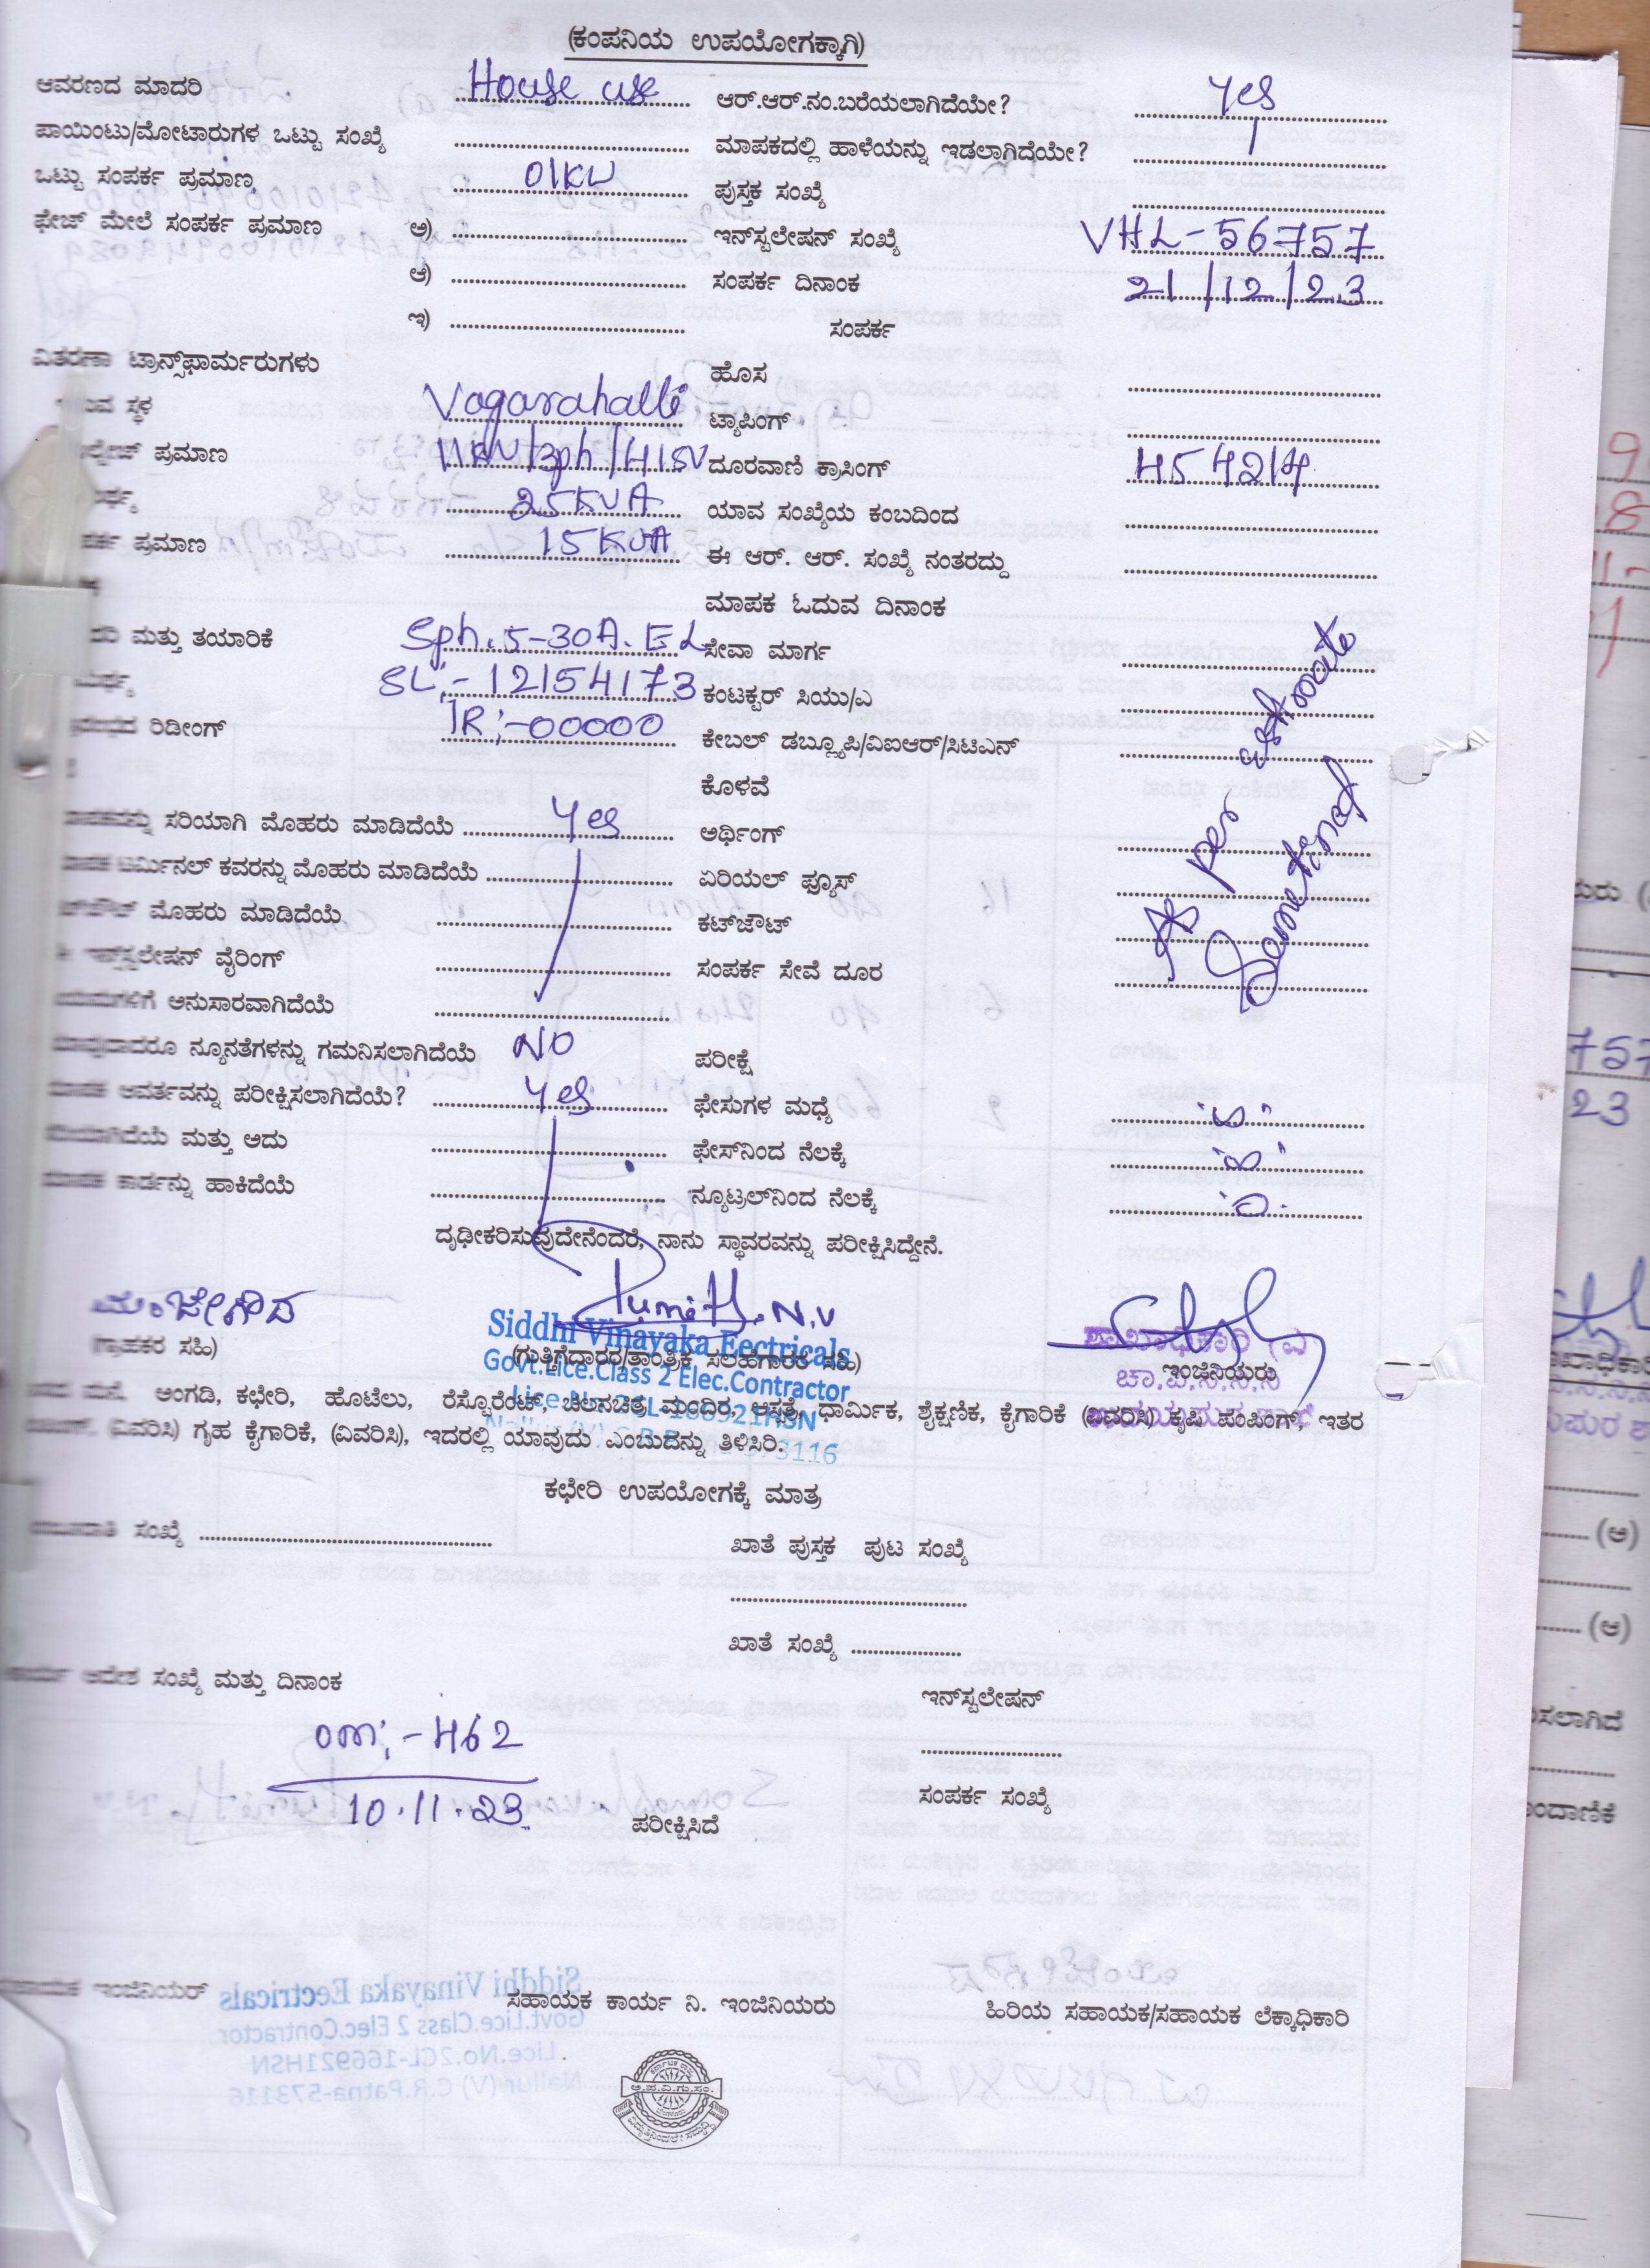 (ಕಂಪನಿಯ ಉಪಯೋಗಕ್ಕಾಗಿ)
ಆವರಣದ ಮಾದರಿ House use ಆರ್.ಆರ್.ನಂ.ಬರೆಯಲಾಗಿದೆಯೇ? Yes
ಪಾಯಿಂಟು/ಮೋಟಾರುಗಳ ಒಟ್ಟು ಸಂಖ್ಯೆ ಮಾಪಕದಲ್ಲಿ ಹಾಳೆಯನ್ನು ಇಡಲಾಗಿದೆಯೇ?
ಒಟ್ಟು ಸಂಪರ್ಕ ಪ್ರಮಾಣ 01KW ಪುಸ್ತಕ ಸಂಖ್ಯೆ
ಫೇಜ್ ಮೇಲೆ ಸಂಪರ್ಕ ಪ್ರಮಾಣ ಅ) ಇನ್‌ಸ್ಟಲೇಷನ್ ಸಂಖ್ಯೆ VHL-56757
ಆ) ಸಂಪರ್ಕ ದಿನಾಂಕ 21/12/23
ಇ) ಸಂಪರ್ಕ
ವಿತರಣಾ ಟ್ರಾನ್ಸ್‌ಫಾರ್ಮರುಗಳು ಹೊಸ
ಸ್ಥಳ Vagarahalli ಟ್ಯಾಪಿಂಗ್
ಪ್ರಮಾಣ 11KV/3ph/415V ದೂರವಾಣಿ ಕ್ರಾಸಿಂಗ್ 454214
25KVA ಯಾವ ಸಂಖ್ಯೆಯ ಕಂಬದಿಂದ
ಪ್ರಮಾಣ 15KVA ಈ ಆರ್. ಆರ್. ಸಂಖ್ಯೆ ನಂತರದ್ದು
ಮಾಪಕ ಓದುವ ದಿನಾಂಕ
ಮತ್ತು ತಯಾರಿಕೆ Sph. 5-30A. EL ಸೇವಾ ಮಾರ್ಗ
SL:- 12154173 ಕಂಟಕ್ಟರ್ ಸಿಯು/ಎ
ರಿಡೀಂಗ್ IR:-00000 ಕೇಬಲ್ ಡಬ್ಲ್ಯೂಪಿ/ವಿಐಆರ್/ಸಿಟಿಎನ್
ಕೊಳವೆ
ಸರಿಯಾಗಿ ಮೊಹರು ಮಾಡಿದೆಯೆ Yes ಅರ್ಥಿಂಗ್
ಟರ್ಮಿನಲ್ ಕವರನ್ನು ಮೊಹರು ಮಾಡಿದೆಯೆ ಏರಿಯಲ್ ಫ್ಯೂಸ್
ಮೊಹರು ಮಾಡಿದೆಯೆ ಕಟ್‌ಔಟ್
ಇನ್‌ಸ್ಟಲೇಷನ್ ವೈರಿಂಗ್ ಸಂಪರ್ಕ ಸೇವೆ ದೂರ
As per estimate
ಅನುಸಾರವಾಗಿದೆಯೆ
ಯಾವುದಾದರೂ ನ್ಯೂನತೆಗಳನ್ನು ಗಮನಿಸಲಾಗಿದೆಯೆ NO ಪರೀಕ್ಷೆ
ಮಾಪಕ ಆವರ್ತವನ್ನು ಪರೀಕ್ಷಿಸಲಾಗಿದೆಯೆ? Yes ಫೇಸುಗಳ ಮಧ್ಯೆ
ಸರಿಯಾಗಿದೆಯೆ ಮತ್ತು ಅದು ಫೇಸ್‌ನಿಂದ ನೆಲಕ್ಕೆ
ಮಾಪಕ ಕಾರ್ಡನ್ನು ಹಾಕಿದೆಯೆ ನ್ಯೂಟ್ರಲ್‌ನಿಂದ ನೆಲಕ್ಕೆ
ದೃಢೀಕರಿಸುವುದೇನೆಂದರೆ, ನಾನು ಸ್ಥಾವರವನ್ನು ಪರೀಕ್ಷಿಸಿದ್ದೇನೆ.
ಮಂಜೇಗೌಡ Punith. N.V
Siddhi Vinayaka Eectricals
(ಗ್ರಾಹಕರ ಸಹಿ) (ಗುತ್ತಿಗೆದಾರರ/ತಾಂತ್ರಿಕ, ಸಲಹೆಗಾರರ ಸಹಿ) ಇಂಜಿನಿಯರು
Govt.Lice.Class 2 Elec.Contractor
ಅಂಗಡಿ, ಕಛೇರಿ, ಹೊಟೆಲು, ರೆಸ್ಟೋರೆಂಟ್, ಚಲನಚಿತ್ರ ಮಂದಿರ, ಆಸ್ಪತ್ರೆ, ಧಾರ್ಮಿಕ, ಶೈಕ್ಷಣಿಕ, ಕೈಗಾರಿಕೆ (ವಿವರಿಸಿ) ಕೃಷಿ ಪಂಪಿಂಗ್, ಇತರ
(ವಿವರಿಸಿ) ಗೃಹ ಕೈಗಾರಿಕೆ, (ವಿವರಿಸಿ), ಇದರಲ್ಲಿ ಯಾವುದು ಎಂಬುದನ್ನು ತಿಳಿಸಿರಿ.
ಕಛೇರಿ ಉಪಯೋಗಕ್ಕೆ ಮಾತ್ರ
ಸಂಖ್ಯೆ ಖಾತೆ ಪುಸ್ತಕ ಪುಟ ಸಂಖ್ಯೆ
ಖಾತೆ ಸಂಖ್ಯೆ
ಕಾರ್ಯ ಆದೇಶ ಸಂಖ್ಯೆ ಮತ್ತು ದಿನಾಂಕ ಇನ್‌ಸ್ಟಲೇಷನ್
om:-462
10.11.23
ಸಂಪರ್ಕ ಸಂಖ್ಯೆ
ಪರೀಕ್ಷಿಸಿದೆ
ಸಹಾಯಕ ಇಂಜಿನಿಯರ್ ಸಹಾಯಕ ಕಾರ್ಯ ನಿ. ಇಂಜಿನಿಯರು ಹಿರಿಯ ಸಹಾಯಕ/ಸಹಾಯಕ ಲೆಕ್ಕಾಧಿಕಾರಿ